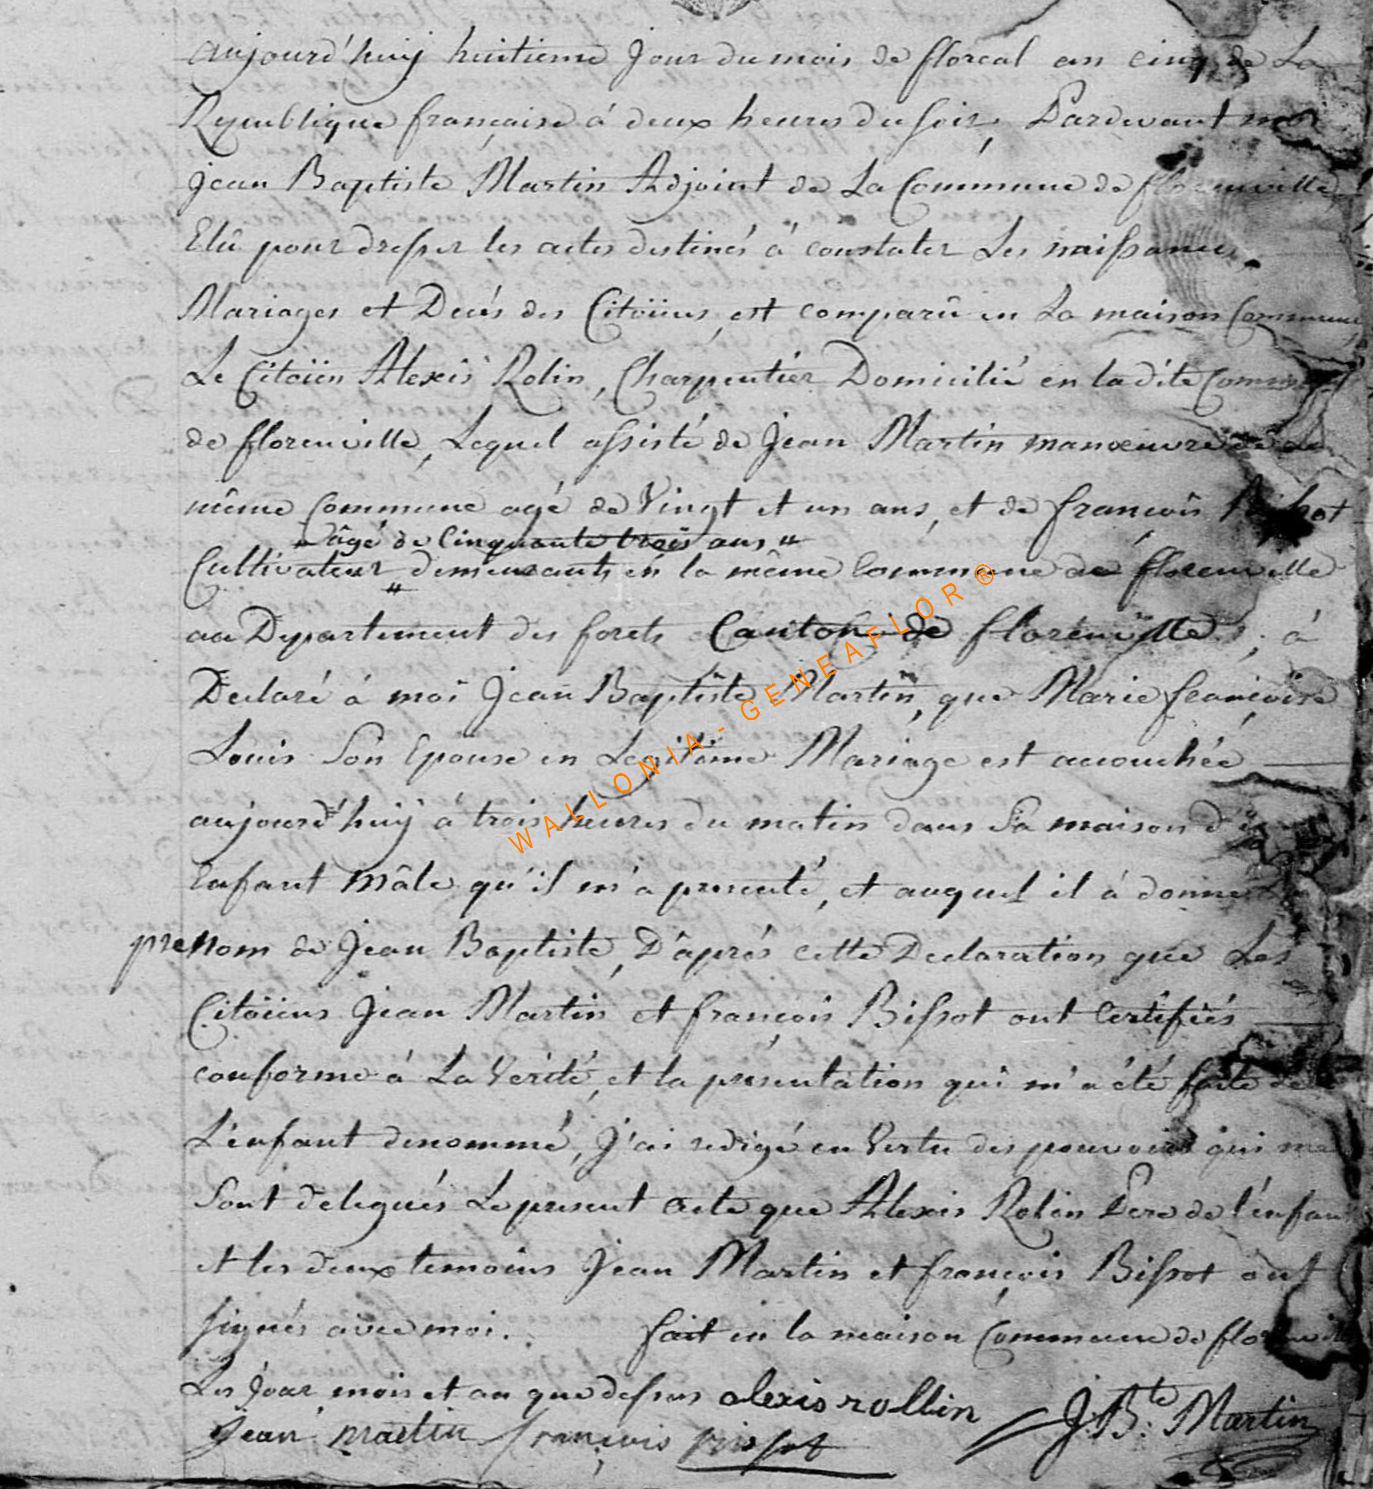 aujourd'huÿ huitieme jour du mois de floreal an cinq de La
Republique française à deux heures du soir, Pardevant moi
jean Baptiste Martin Adjoint de La Commune de florenville
Elû pour dresser les actes destinés à constater Les naissances
Mariages et Decés des Citoïens, est comparû en La maison Commune
Le Citoïen Alexis Rolin, Charpentiér Domicilié en ladite Commune
de florenville, Lequel assisté de Jean Martin manœuvre de La
même Commune agé de Vingt et un ans, et de françois Bissot
" âgé de Cinquante trois ans "
Cultivateur " demeurants en la même Commune de florenville
au Departement des forets Canton de florenville, à
Declaré à moi Jean Baptiste Martin, que Marie françoise
Louis Son Epouse en Legitime Mariage est accouchée
aujourd'huÿ à trois heures du matin dans Sa maison d'un
Enfant Mâle qu'il m'a presenté, et auquel il à donné Le
prenom de Jean Baptiste, D'après cette Declaration que Les
Citoïens Jean Martin et françois Bissot ont Certifiés
conforme à La Verité, et la présentation qui m'a été faite de
L'enfant denommé, J'ai redigé en Vertu des pouvoirs qui me
Sont delegués Le present acte que Alexis Rolin Pere de l'enfant
et les deux temoins Jean Martin et françois Bissot ont
signés avec moi. fait en la maison Commune de florenville
Les Jour mois et an que dessus alexis rollin
Jean martin françois bissot J. B.te Martin
WALLONIA - GENEAFLOR ®